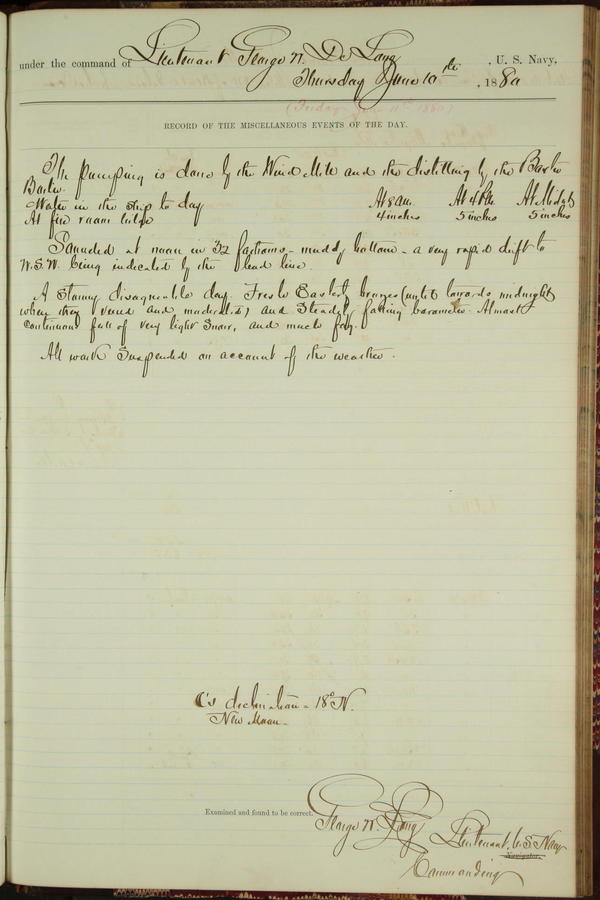 under the command of Lieutenant George W. De Long, U. S. Navy,
Thursday June 10th, 1880
(Friday June 11th 1880)
RECORD OF THE MISCELLANEOUS EVENTS OF THE DAY.
The pumping is done by the Wind Mill and the distilling by the Baxter
Boiler.
Water in the ship to day At 8 AM. At 4 PM At Midnt
At fire room bilge 4 inches 5 inches 5 inches
Sounded at noon in 32 fathoms - muddy bottom - a very rapid drift to
W.S.W. being indicated by the lead line.
A stormy disagreeable day. Fresh Easterly breezes (until towards midnight
when they veered and moderated) and Steadily falling barometer. Almost
Continuous fall of very light Snow, and much fog.
All work Suspended on account of the weather.
☾'s declination - 18° N.
New Moon -
Examined and found to be correct.
George W. De Long
Lieutenant, U.S. Navy
Navigator.
Commanding